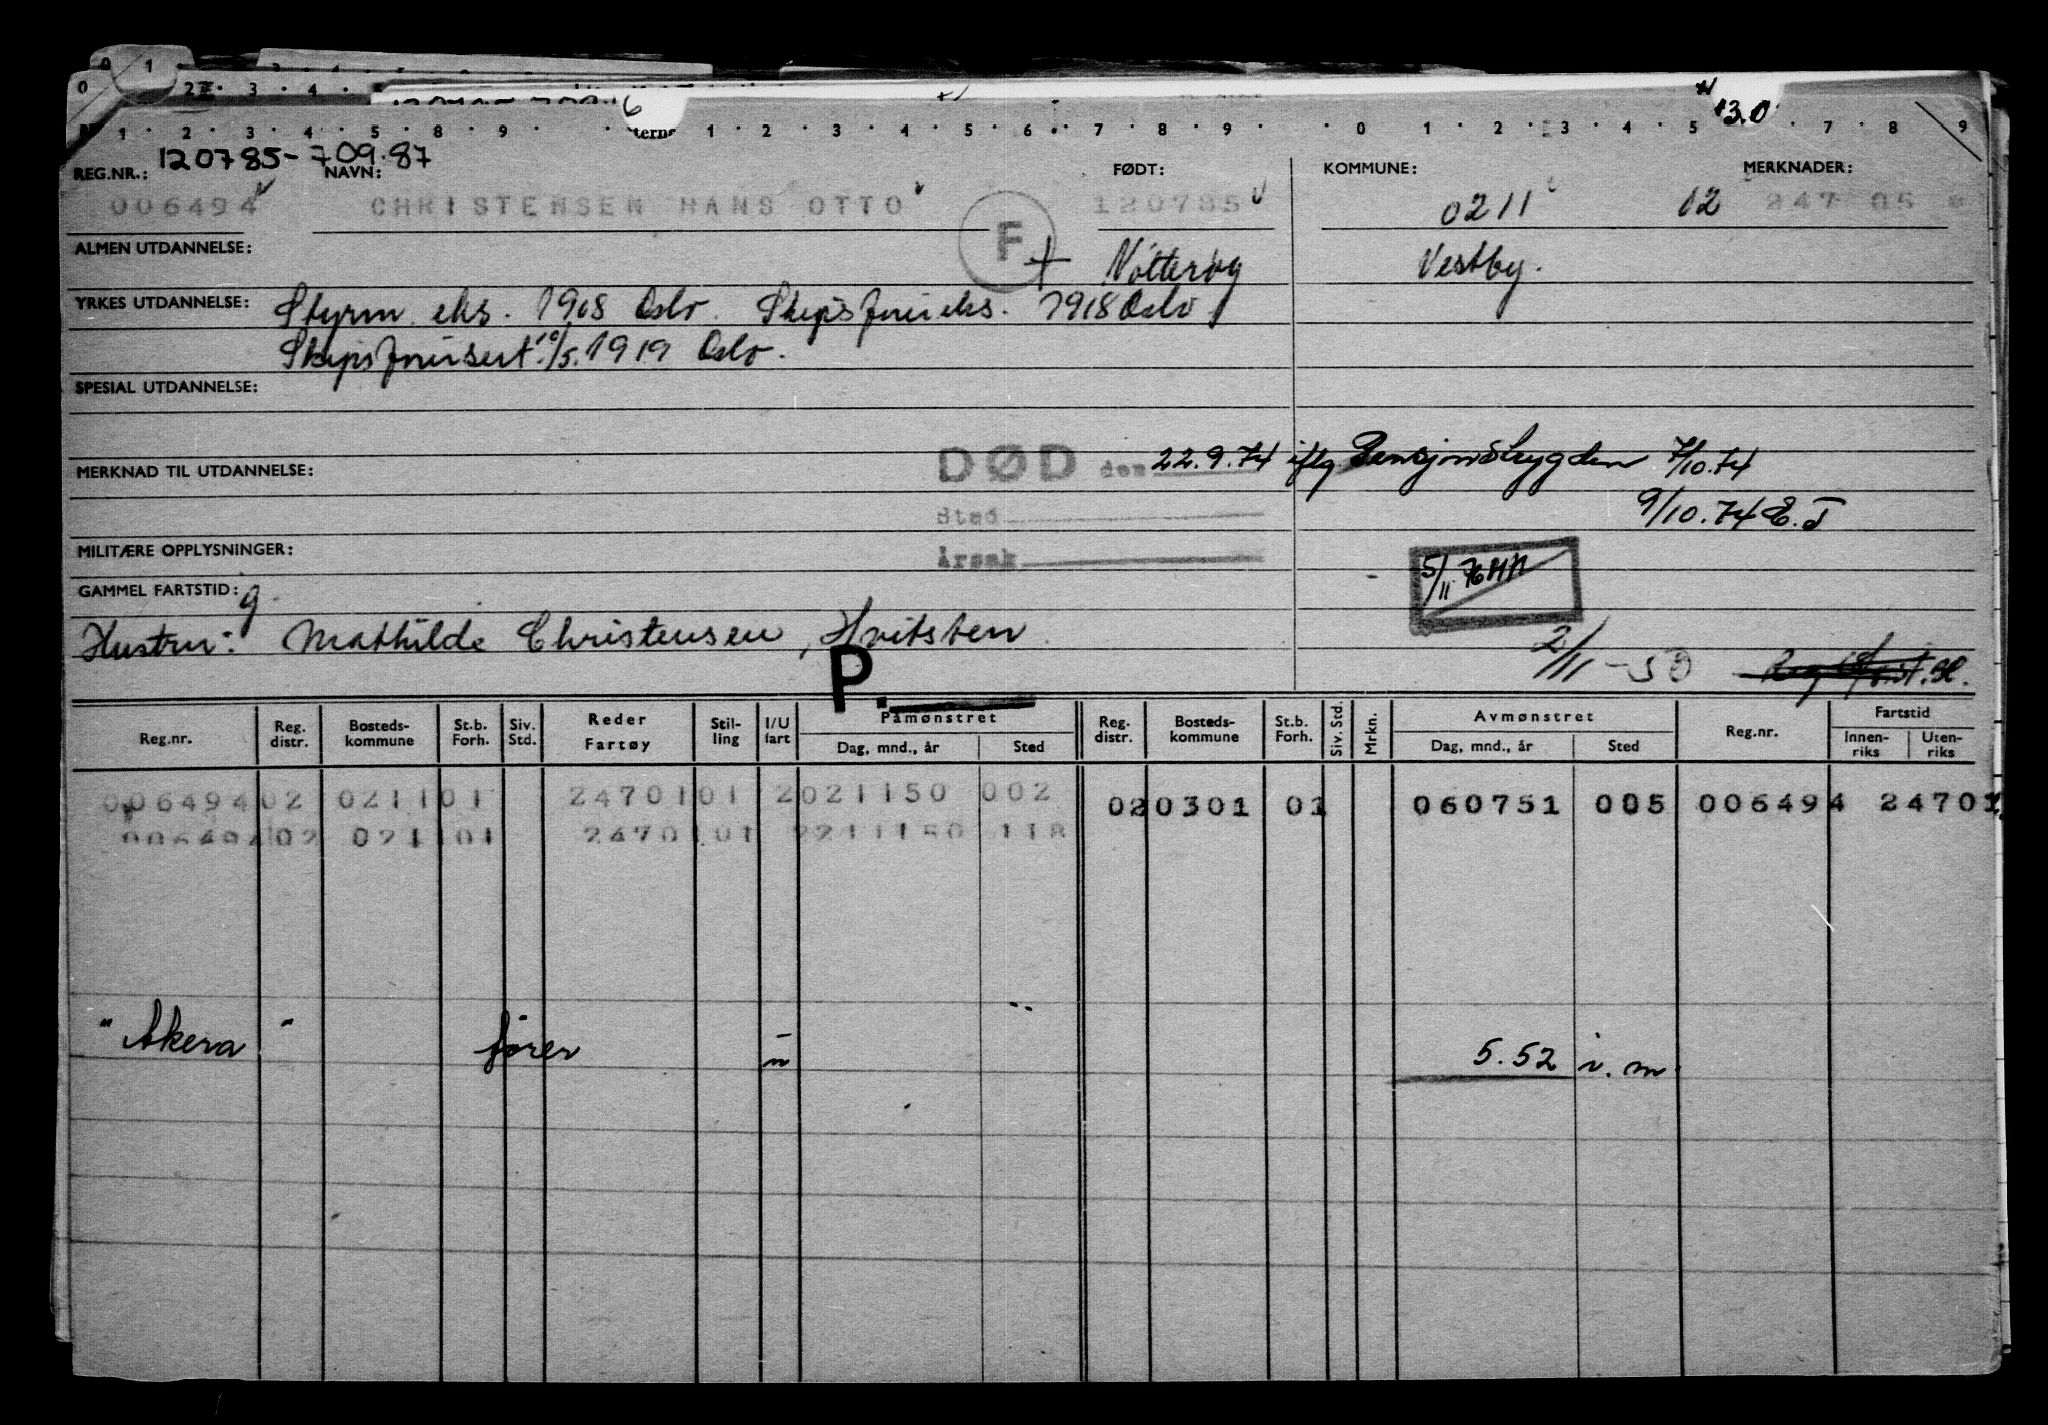 0 1
0 2 3 4
6
+ 13.0
1 2 3 4 5 8 9 terne 1 2 3 4 5 6 7 8 9 0 1 2 3 4 5 7 8 9
120785-709.87
REG.NR.: NAVN: FØDT: KOMMUNE: MERKNADER:
006494 CHRISTENSEN HANS OTTO 120785 0211 02 247 05
F
ALMEN UTDANNELSE: + Nötteröy Vestby.
YRKES UTDANNELSE: Styrm. eks. 1908 Oslo. Skipsförereks. 1918 Oslo
Skipsförersert. 10/5.1919 Oslo.
SPESIAL UTDANNELSE:
MERKNAD TIL UTDANNELSE: DØD den 22.9.74 iflg Pensjonstrygden 7/10.74
Sted 9/10.74 E.T
MILITÆRE OPPLYSNINGER: Årsak
5/11 76 HN
GAMMEL FARTSTID: g
Hustru: Mathilde Christensen, Hvitsten.
2/11-50
P.
Reg.nr. Reg. distr. Bosteds-kommune St.b. Forh. Siv. Std. Reder Fartøy Stil-ling I/U fart Påmønstret Dag, mnd., år Sted Reg. distr. Bosteds-kommune St.b. Forh. Siv. Std. Mrkn. Avmønstret Dag, mnd., år Sted Reg.nr. Fartstid Innen-riks Uten-riks
006494 02 0211 01 24701 01 2 021150 002 02 0301 01 060751 005 006494 24701
006494 02 0211 01 24701 01 2 211150 118
"Akera" fører u 5.52 i.m.